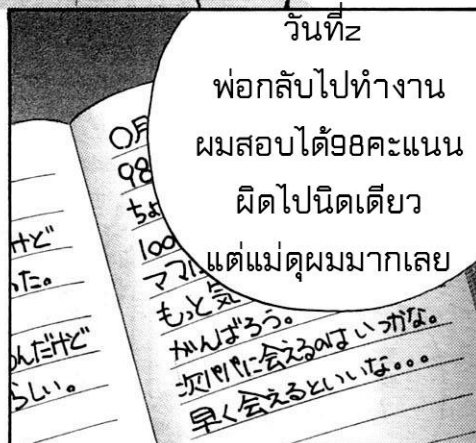 วันที่z
พ่อกลับไปทำงาน
ผมสอบได้98คะแนน
ผิดไปนิดเดียว
แต่แม่ดุผมมากเลย
〇月
98
ちょ
100
ママに
もっと気
がんばろう。
次パパに会えるのはいつかな。
早く会えるといいな。。。
けど
た。
んだけど
らしい。